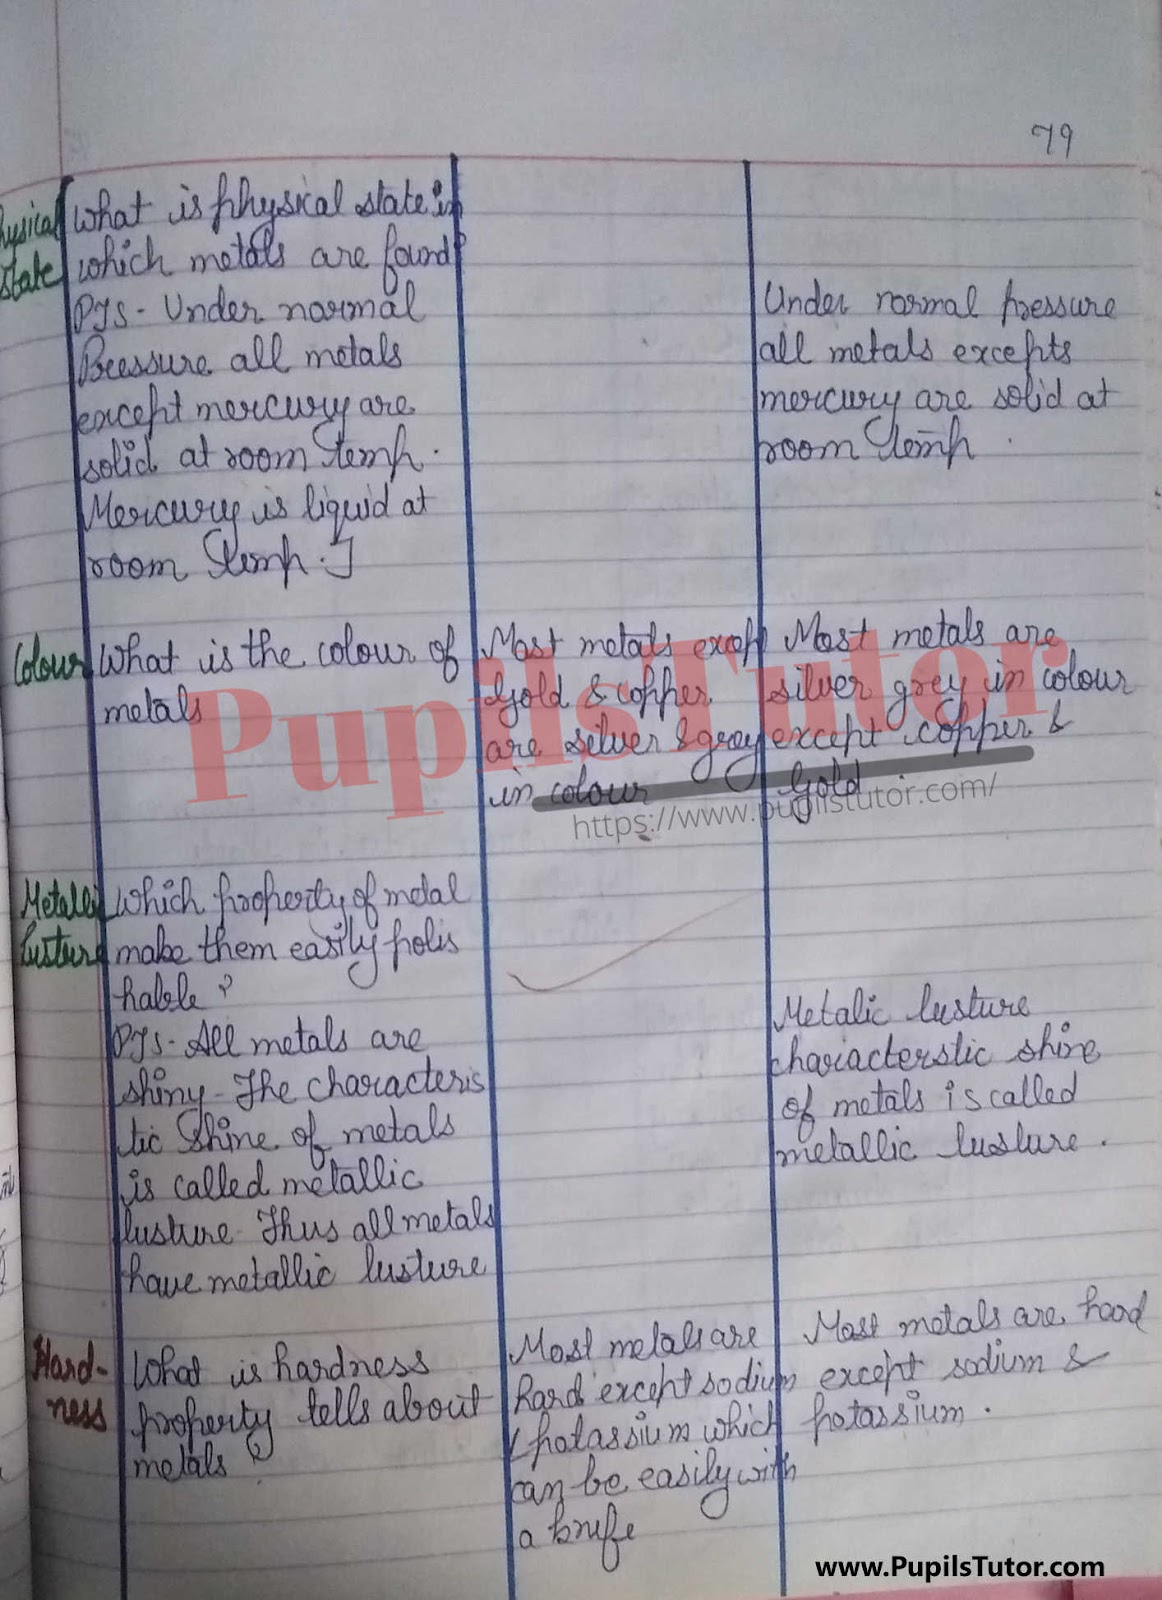 79
hysical
state
What is physical state in
which metals are found?
PTS - Under normal
Pressure all metals
except mercury are
solid at room temp.
Mercury is liquid at
room temp.]
Under normal pressure
all metals excepts
mercury are solid at
room temp.
Colour
What is the colour of
metals
Most metals excep
Gold & copper
are silver & grey
in colour
Most metals are
silver grey in colour
except copper &
Gold
PupilsTutor
https://www.pupilstutor.com/
Metalli
Lusture
Which property of metal
make them easily polis
hable?
PTS - All metals are
shiny - The characteris
tic shine of metals
is called metallic
lusture. Thus all metals
have metallic lusture
Metalic lusture
characterstic shine
of metals is called
metallic lusture.
Hard-
ness
What is hardness
property tells about
metals?
Most metals are
hard except sodium
& potassium which
can be easily with
a knife
Most metals are hard
except sodium &
potassium.
www.PupilsTutor.com